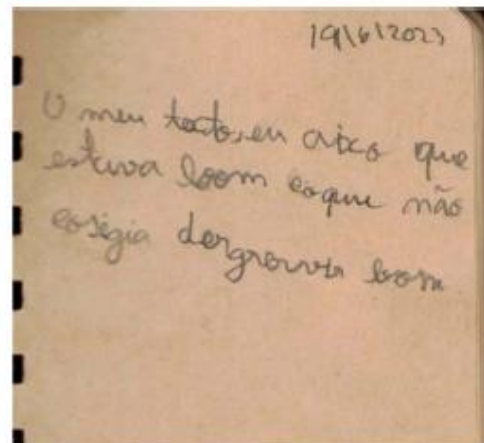 19/6/2023
O meu texto, eu aixo que
estava boom eoque não
cosigia boom